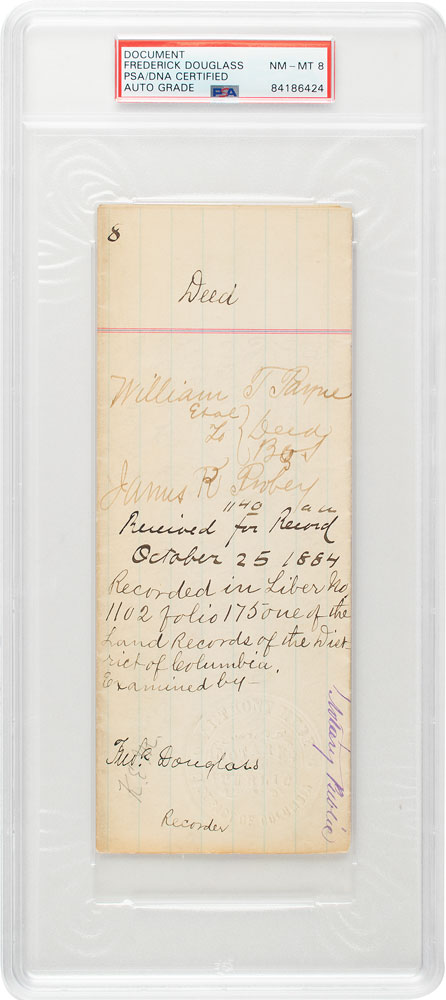 DOCUMENT
FREDERICK DOUGLASS NM - MT 8
PSA/DNA CERTIFIED
AUTO GRADE PSA 84186424
8
Deed
William T Payne
Et al
To } Deed
B & S
James R Probey
11 40 a m
Received for Record
October 25 1884
Recorded in Liber No,
1102 folio 175 one of the
Land Records of the Dist-
rict of Columbia.
Examined by —
Fredk Douglass
Recorder
Notary Public
PSA